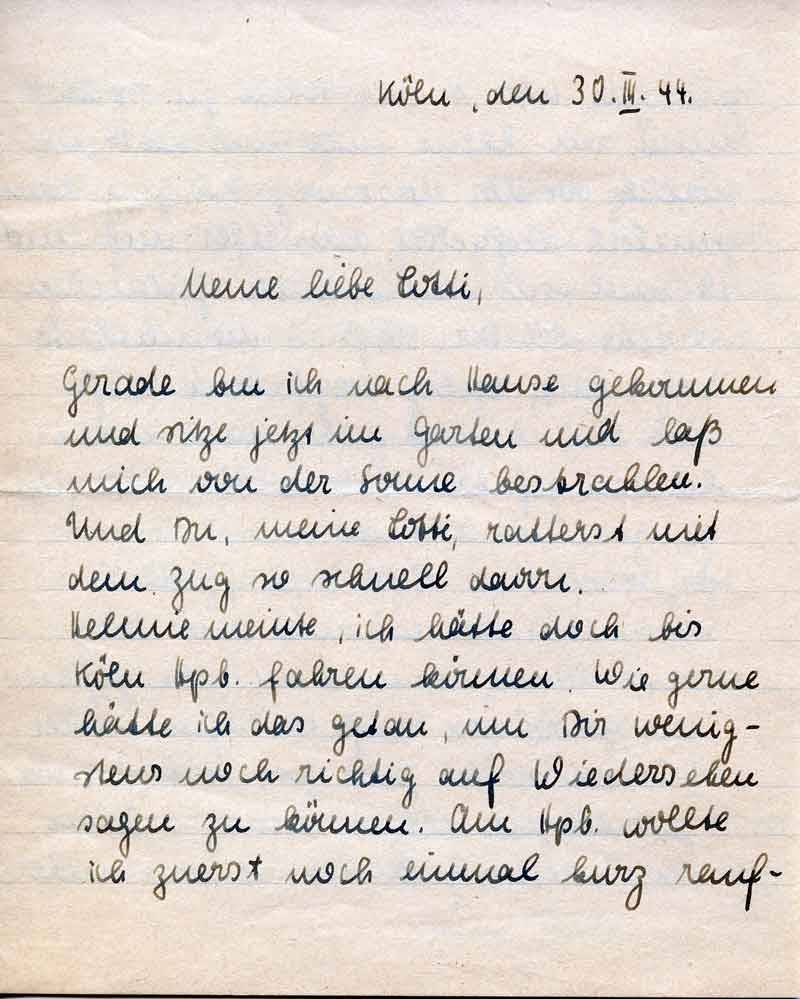 Köln, den 30.III.44.
Meine liebe Lotti,
Gerade bin ich nach Hause gekommen
und sitze jetzt im Garten und laß
mich von der Sonne bestrahlen.
Und Du, meine Lotti, ratterst mit
dem Zug so schnell davon.
Helmie meinte, ich hätte doch bis
Köln Hpb. fahren können. Wie gerne
hätte ich das getan, um Dir wenig-
stens noch richtig auf Wiedersehen
sagen zu können. Am Hpb. wollte
ich zuerst noch einmal kurz rauf-